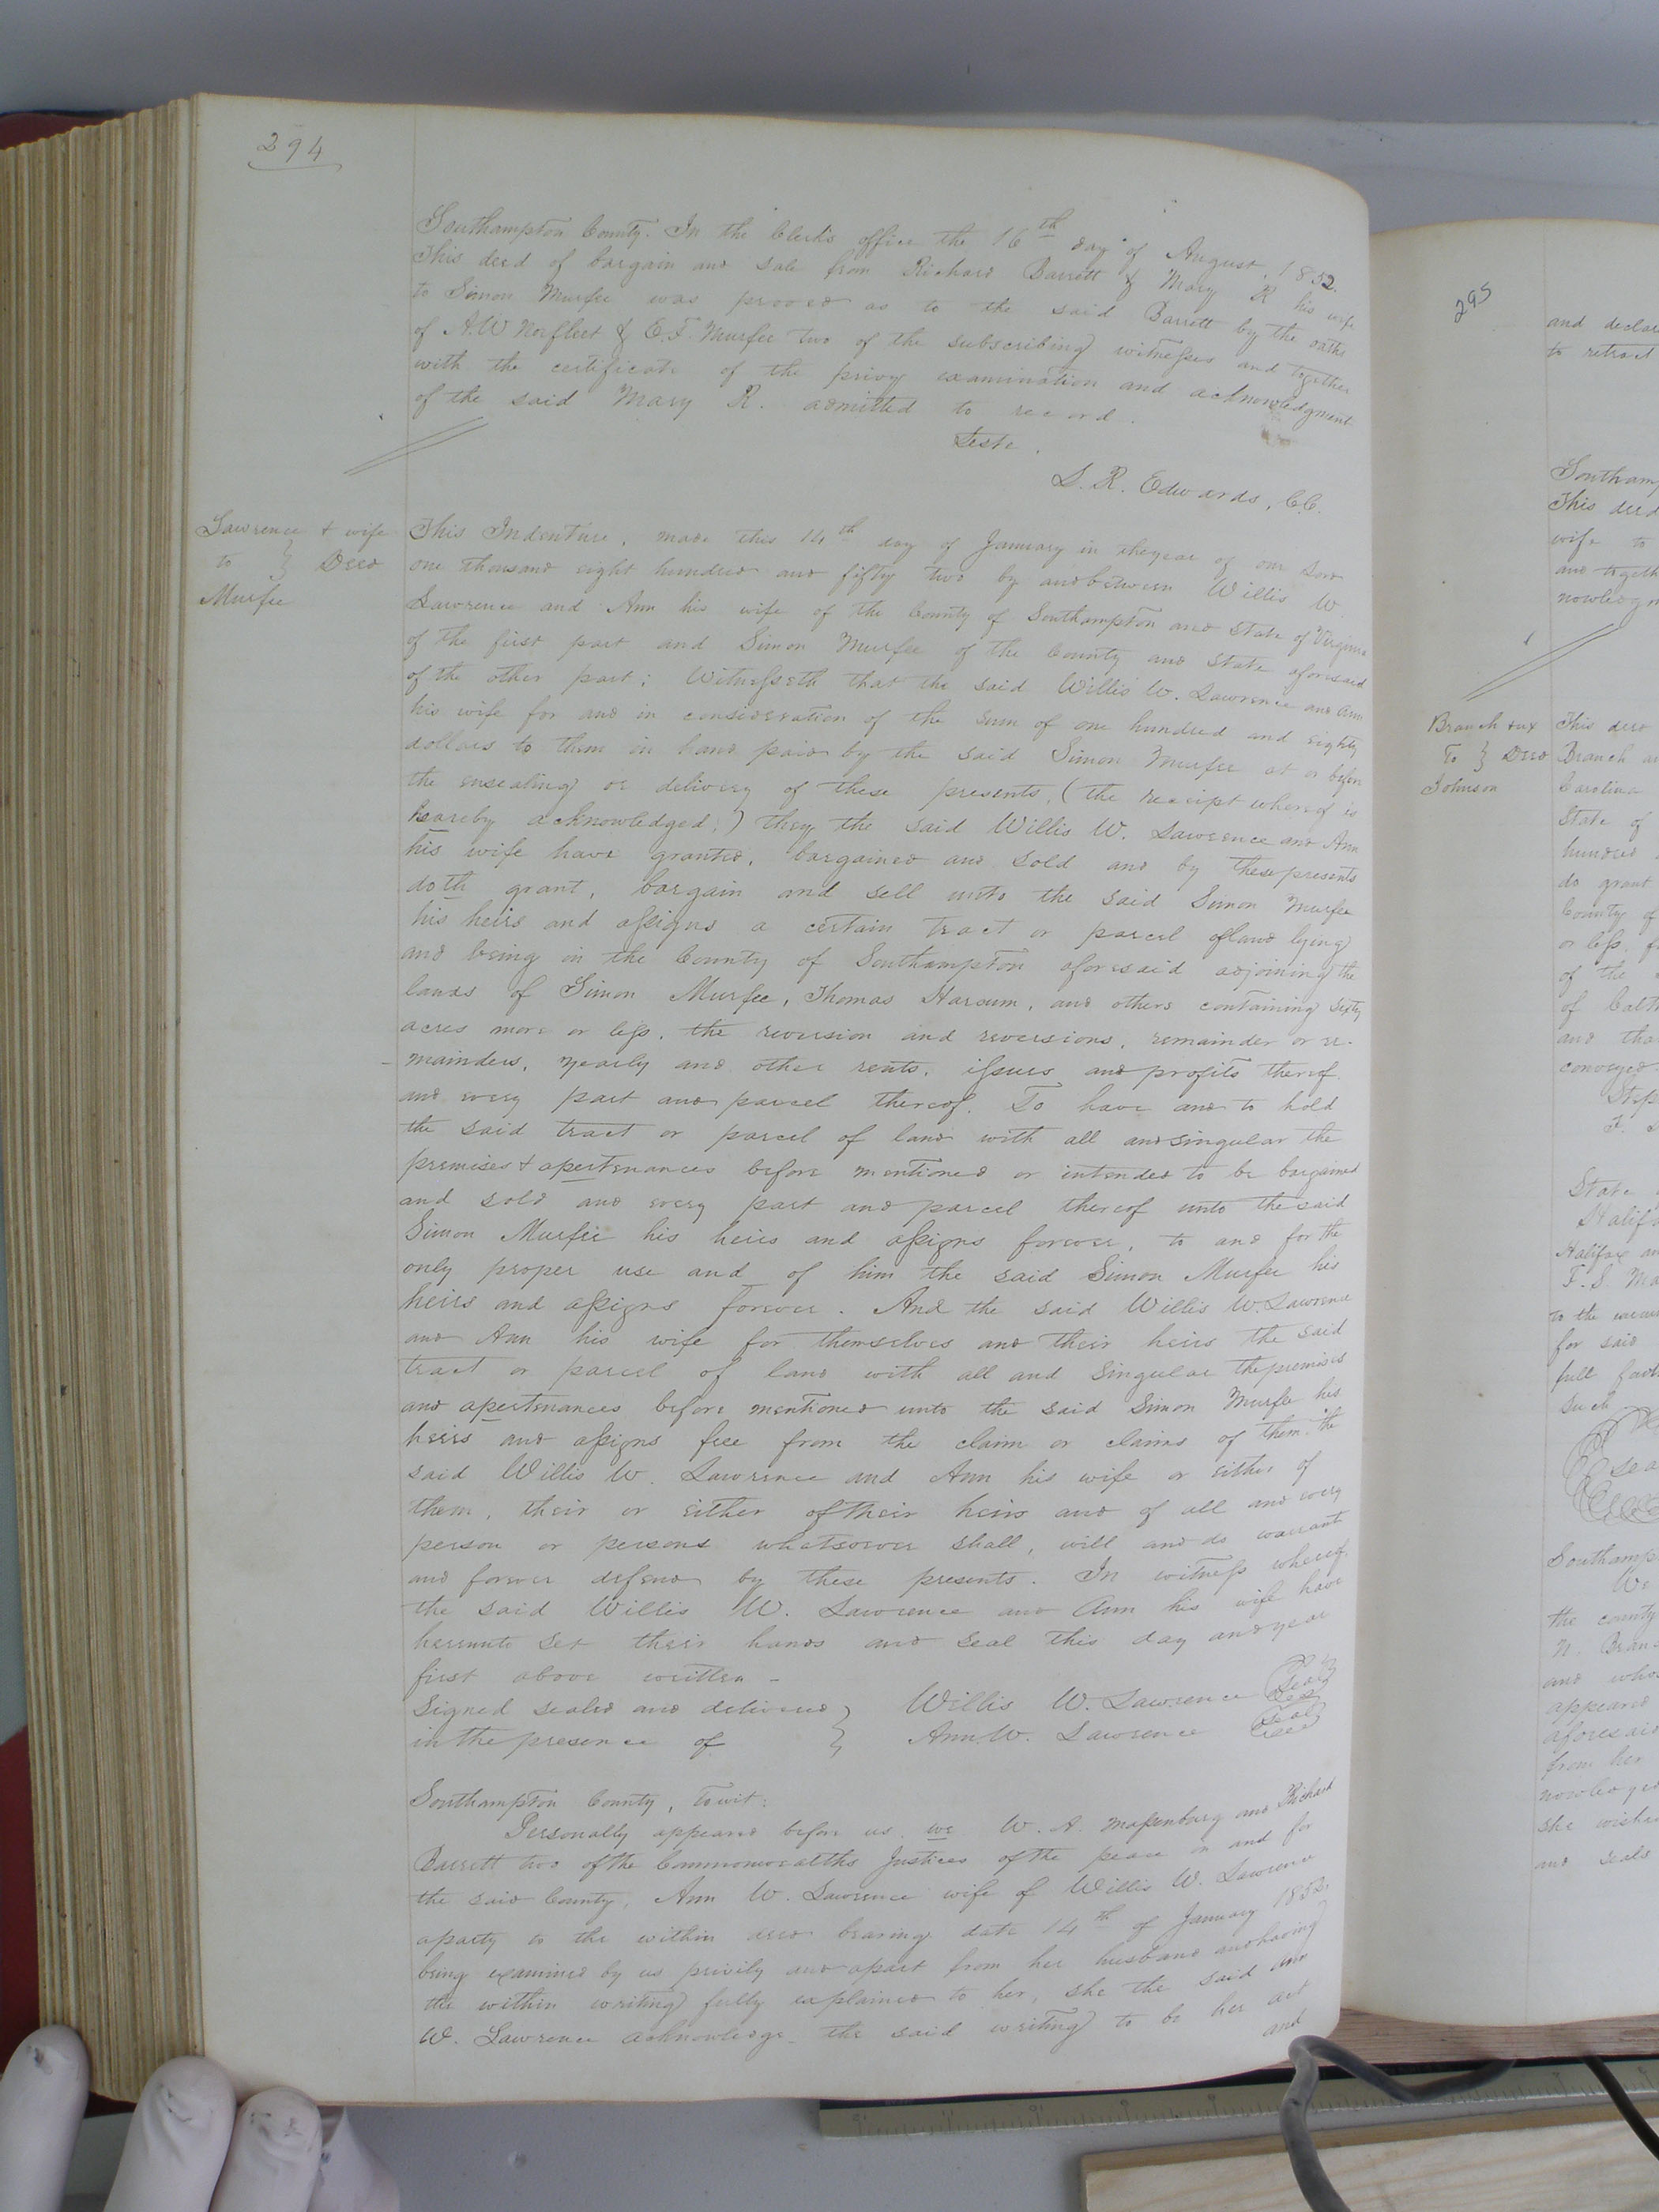 294
Southampton County. In the Clerk's office the 16th day of August, 1852.
This deed of bargain and sale from Richard Barrett & Mary R his wife
to Simon Murfee was prooved as to the said Barrett by the oaths
of A.W Norfleet & E.F. Murfee two of the subscribing witnesses and together
with the certificate of the privy examination and acknowledgment
of the said Mary R. admitted to record.
Teste.
L. R. Edwards, C.C.
Lawrence & wife
to } Deed
Murfee
This Indenture, made this 14th day of January in the year of our Lord
one thousand eight hundred and fifty two by and between Willis W
Lawrence and Ann his wife of the County of Southampton and State of Virginia
of the first part and Simon Murfee of the County and State aforesaid
of the other part; Witnesseth that the said Willis W. Lawrence and Ann
his wife for and in consideration of the sum of one hundred and eighty
dollars to them in hand paid by the said Simon Murfee at or before
the ensealing or delivery of these presents, (the receipt whereof is
hereby acknowledged;) they the said Willis W. Lawrence and Ann
his wife have granted, bargained and sold and by these presents
doth grant, bargain and sell unto the said Simon Murfee
his heirs and assigns a certain tract or parcel of land lying
and being in the County of Southampton aforesaid adjoining the
lands of Simon Murfee, Thomas Harcum, and others containing sixty
acres more or less, the reversion and reversions, remainder or re-
-mainders, yearly and other rents, issues and profits thereof
and every part and parcel thereof. To have and to hold
the said tract or parcel of land with all and singular the
premises & apertenances before mentioned or intended to be bargained
and sold and every part and parcel thereof unto the said
Simon Murfee his heirs and assigns forever, to and for the
only proper use and of him the said Simon Murfee his
heirs and assigns forever. And the said Willis W. Lawrence
and Ann his wife for themselves and their heirs the said
tract or parcel of land with all and singular the premises
and apertenances before mentioned unto the said Simon Murfee his
heirs and assigns free from the claim or claims of them the
said Willis W. Lawrence and Ann his wife or either of
them, their or either of their heirs and of all and every
person or persons whatsoever shall, will and do warrant
and forever defend by these presents. In witness whereof
the said Willis W. Lawrence and Ann his wife have
hereunto set their hands and seal this day and year
first above written -
Signed sealed and delivered } Willis W. Lawrence Seal
in the presence of } Ann W. Lawrence Seal
Southampton County, To wit:
Personally appeared before us we W. A. Massenburg and Richard
Barrett two of the Commonwealths Justices of the peace in and for
the said County, Ann W. Lawrence wife of Willis W. Lawrence
a party to the within deed bearing date 14th of January 1852.
being examined by us privily and apart from her husband and having
the within writing fully explained to her, she the said Ann
W. Lawrence acknowledge the said writing to be her act
and
295
and declar
to retract
Southamp
This deed
wife to
and togeth
nowledgm
Branch & ux
To } Deed
Johnson
This deed
Branch an
Carolina
State of
hundred
do grant
County of
or less, f
of the
of
and tha
conveyed
Step
State
Halifa
Halifax an
F. S. Ma
to the
for said
full faith
such
Sea
Southamp
We
the county
N. Bran
and who
appeared
aforesaid
from her
nowledged
she wished
and seals